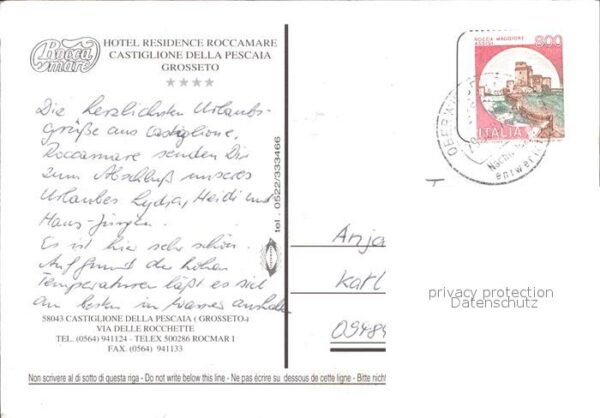 Rocca
mare
HOTEL RESIDENCE ROCCAMARE
CASTIGLIONE DELLA PESCAIA
GROSSETO
Die herzlichsten Urlaubs-
grüße aus Castiglione,
Roccamare senden Dir
zum Abschluß unseres
Urlaubes Lydia, Heidi und
Hans-Jürgen.
Es ist hier sehr schön.
Aufgrund der hohen
Temperaturen läßt es sich
am besten im Wasser aushalten
58043 CASTIGLIONE DELLA PESCAIA ( GROSSETO-)
VIA DELLE ROCCHETTE
TEL. (0564) 941124 - TELEX 500286 ROCMAR I
FAX. (0564) 941133
tel. 0522/333466
ROCCA MAGGIORE
ASSISI
800
ITALIA
Nachträglich
entwertet
Anja
Karl
09484
privacy protection
Datenschutz
Non scrivere al di sotto di questa riga - Do not write below this line - Ne pas écrire su dessous de cette ligne - Bitte nicht